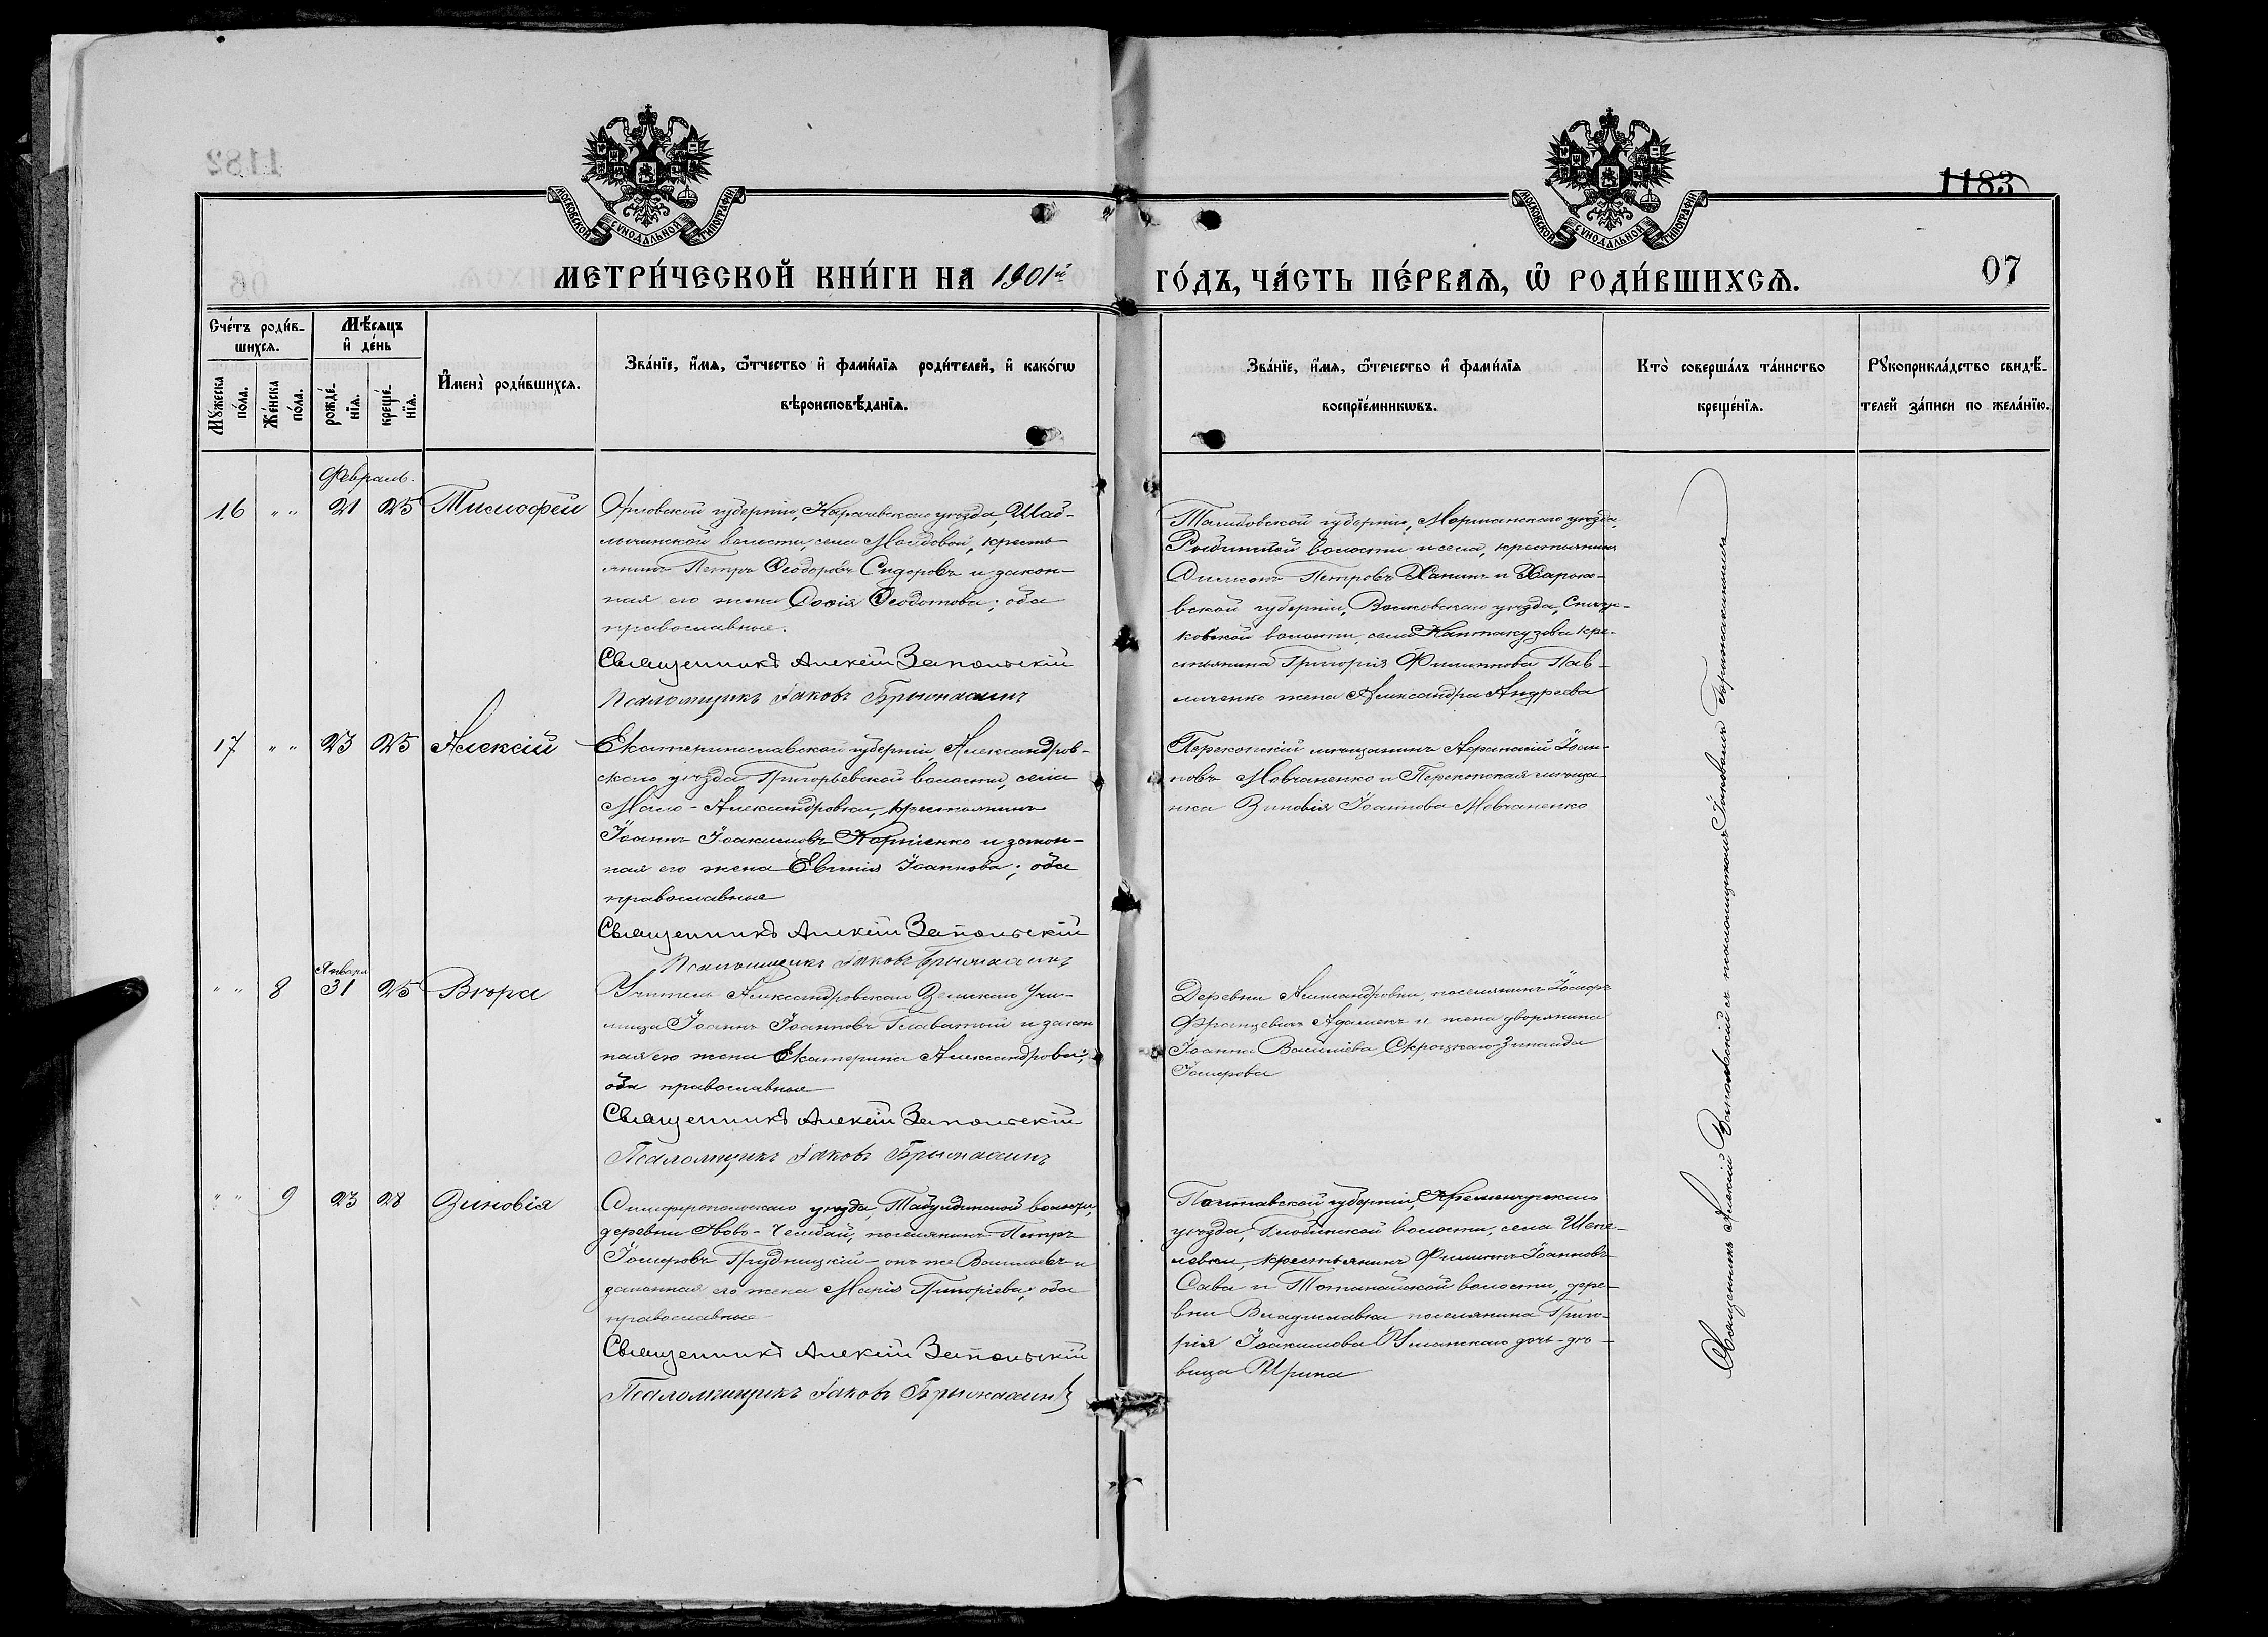 1182
1183
МОСКОВСКОЙ СѴНОДАЛЬНОЙ ТИПОГРАФІИ
МОСКОВСКОЙ СѴНОДАЛЬНОЙ ТИПОГРАФІИ
МЕТРИ́ЧЕСКОЙ КНИ́ГИ НА 1901й ГО́ДЪ, ЧА́СТЬ ПЕ́РВАѦ, Ѡ҆ РОДИ́ВШИХСѦ.
07
Счéтъ роди́в-
шихсѧ.
Мꙋ́жеска по́ла.
Же́нска по́ла.
Мѣ́сѧцъ
и҆ де́нь
рожде́-
нїѧ.
креще́-
нїѧ.
И҆мена̀ роди́вшихсѧ.
Зва́нїе, и҆́мѧ, ѻ҆́тчество и҆ фами́лїѧ роди́телей, и҆ како́гѡ
вѣроисповѣ́данїѧ.
Зва́нїе, и҆́мѧ, ѻ҆те́чество и҆ фами́лїѧ
воспрїе́мникѡвъ.
Кто̀ соверша́лъ та́инство
креще́нїѧ.
Рꙋкоприкла́дство свидѣ́-
телей за́писи по жела́нїю.
Февраль.
16 " " 21 25 Тимофей
Орловской губерніи, Карачевскаго уѣзда, Шаб-
лыкинской волости, села Молдовой, кресть-
янинъ Петръ Ѳеодоровъ Сидоровъ и закон-
ная его жена Софія Ѳеодотова; оба
православные.
Священникъ Алексій Запольскій
Псаломщикъ Іаковъ
Тамбовской губерніи, Моршанскаго уѣзда,
волости и села, крестьянинъ
Симеонъ Петровъ Ханинъ и Харьк-
вской губерніи, Волковскаго уѣзда,
ковской волости, села Кантакузова кре-
стьянина Григорія Филиппова Пав-
личенко жена Александра Андреева
17 " " 23 25 Алексій
Екатеринославской губерніи, Александров-
скаго уѣзда Григорьевской волости, села
Мало-Александровки, крестьянинъ
Іоаннъ Іоакимовъ Корніенко и закон-
ная его жена Евгенія Іоаннова; оба
православные
Священникъ Алексій Запольскій
Псаломщикъ Іаковъ
Перекопскій мѣщанинъ Аѳанасій Іоан-
новъ Мовчаненко и Перекопская мѣща-
нка Зиновія Іоаннова Мовчаненко
Января
" " 8 31 25 Вѣра
Учитель Александровскаго Земскаго Учи-
лища Іоаннъ Іоанновъ Главатый и закон
ная его жена Екатерина Александрова;
оба православные
Священникъ Алексій Запольскій
Псаломщикъ Іаковъ
Деревни Александровки, поселянинъ Іосифъ
Францевичъ Адаменъ и жена дворянина
Іоанна Василіева Скроцкаго Зинаида
Іосифова
" " 9 23 28 Зиновія
Симферопольскаго уѣзда, Табулдинской волости,
деревни Ново-Челебай, поселянинъ Петръ
Іосифовъ Грудницкій - онъ же Васильевъ и
законная его жена Марія Григоріева; оба
православные
Священникъ Алексій Запольскій
Псаломщикъ Іаковъ
Полтавской губерніи, Кременчугскаго
уѣзда, Глобинской волости, села Шепе-
левки, крестьянинъ Филиппъ Іоанновъ
Сава и Тотанайской волости, дере-
вни Владиславки поселянина Григо-
рія Іоакимова Уманскаго дочь-дѣ-
вица Ирина
Священникъ Алексій Запольскій съ псаломщикомъ Іаковомъ